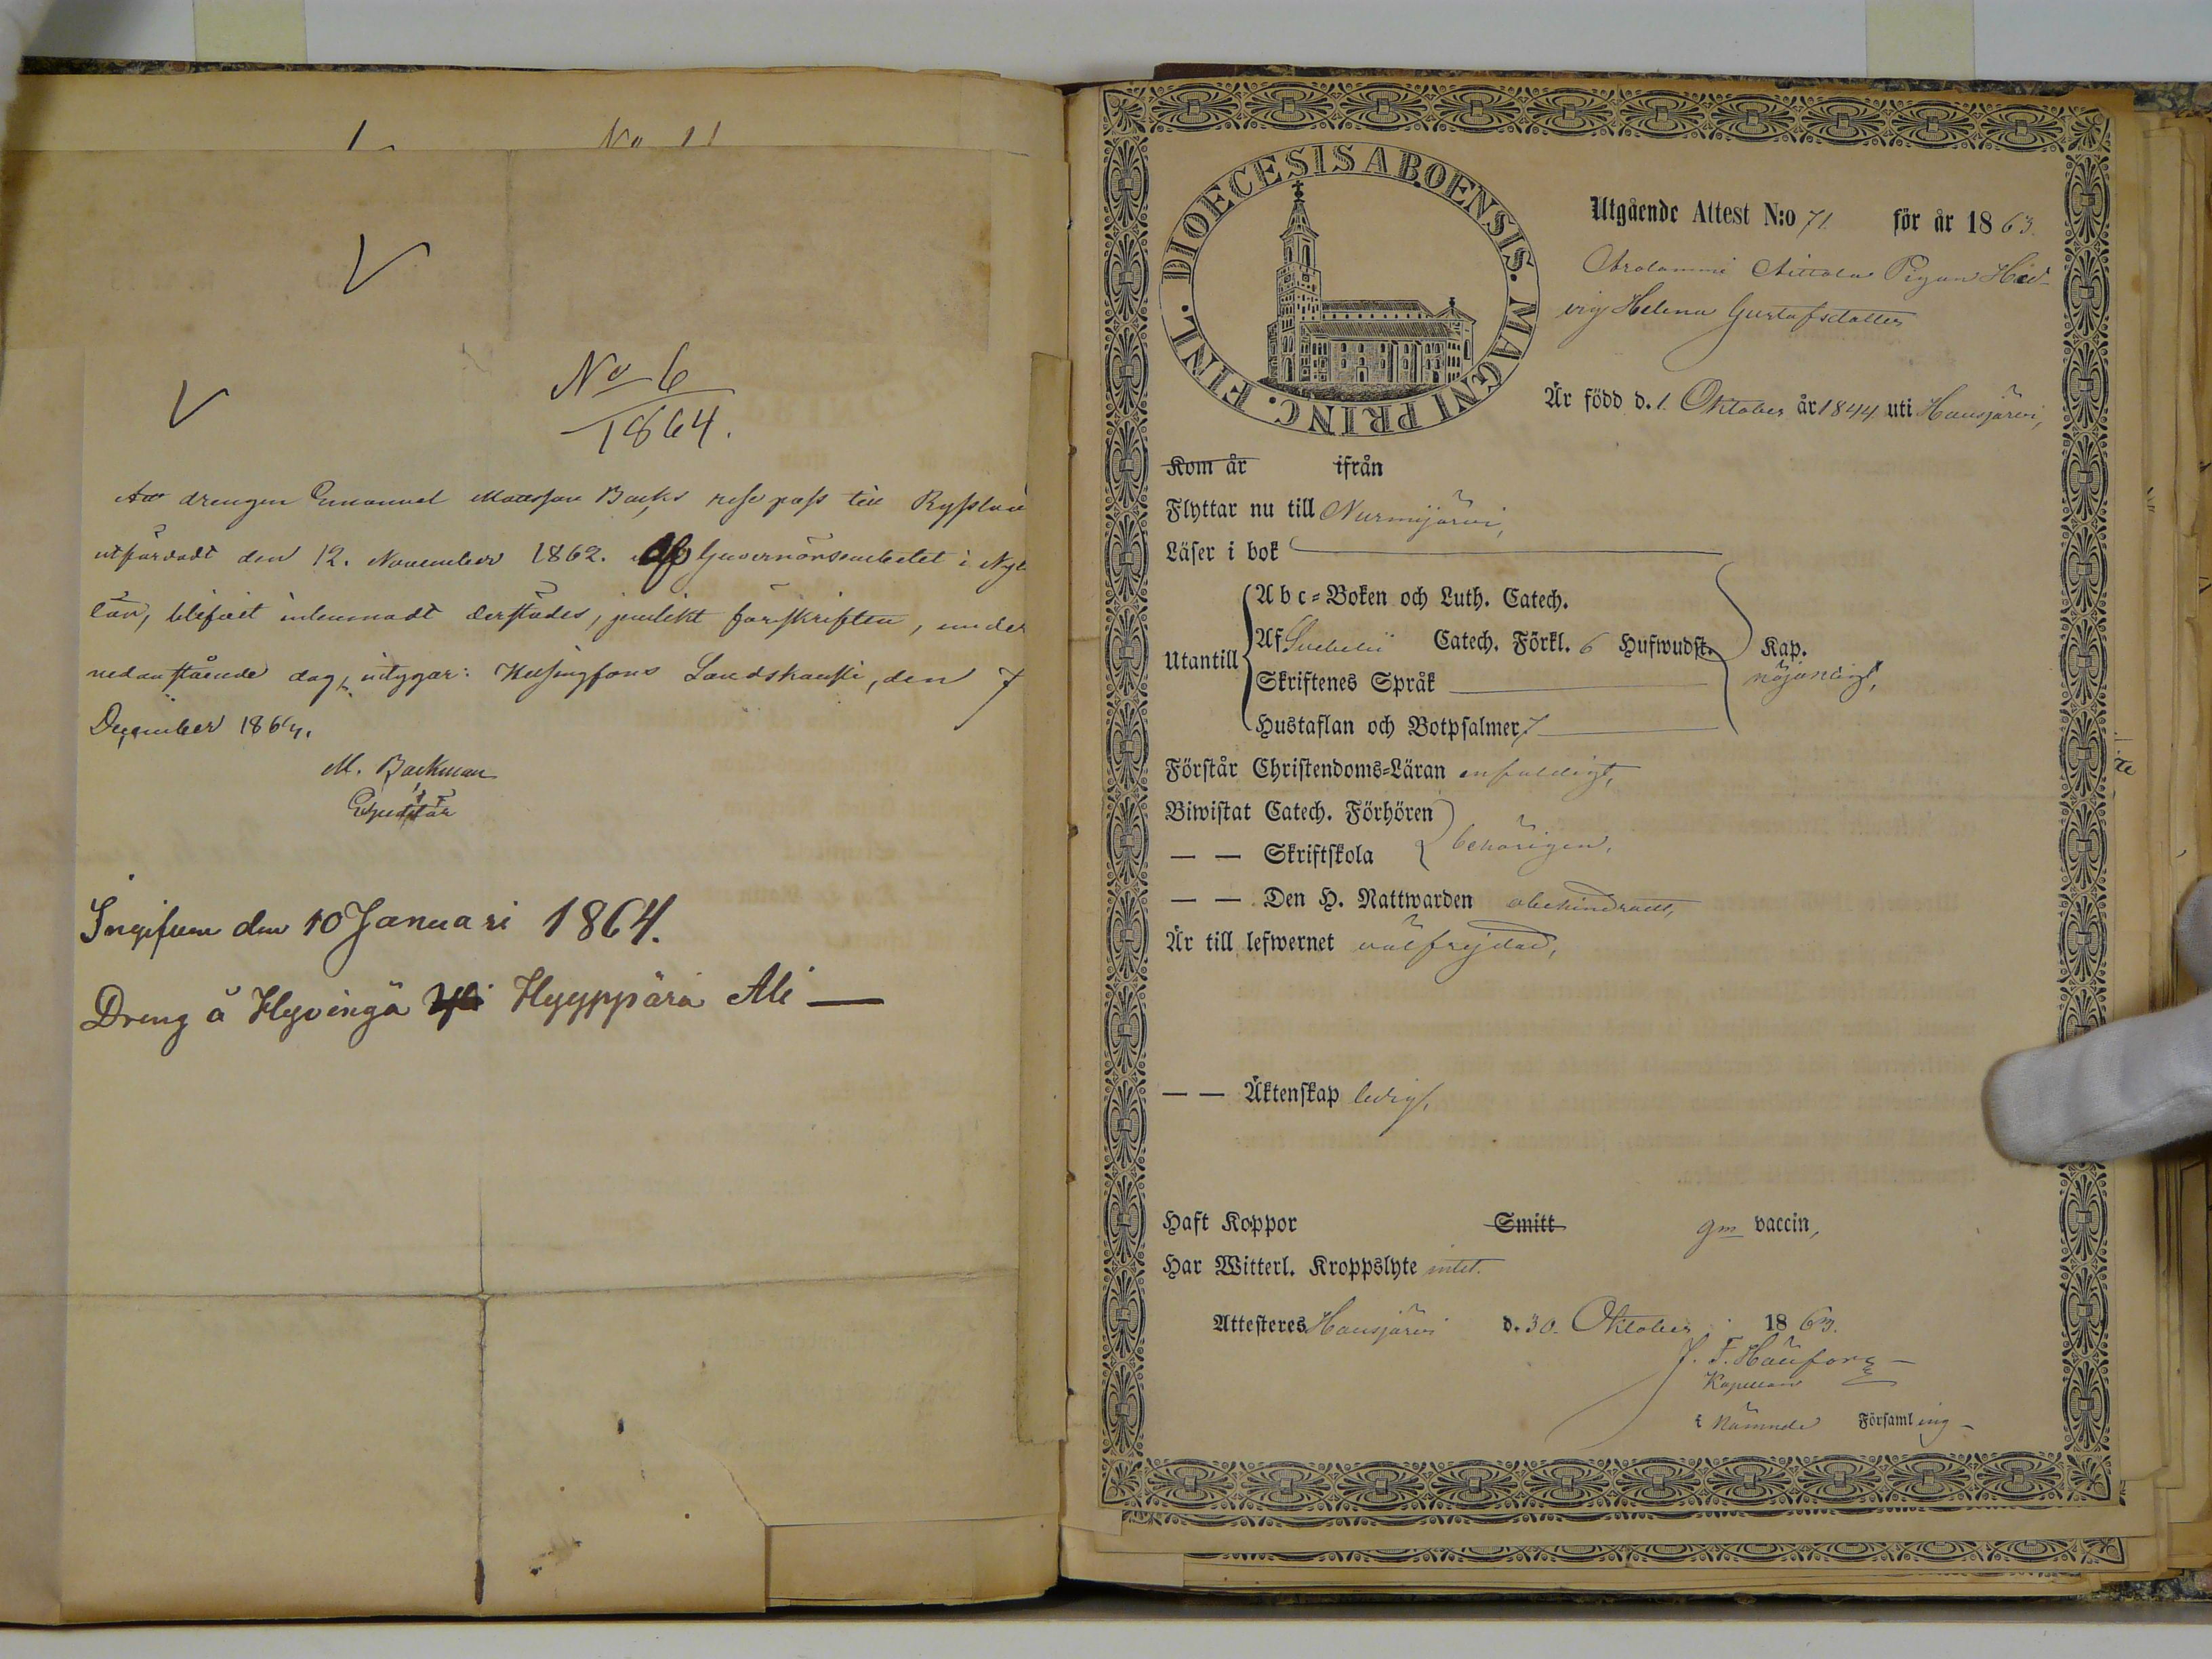 No 11
No 6
1864.
Att drengen Emanuel Matsson Backs respass till Ryssland
utfärdadt den 12. November 1862. af Guvernörsembetet i Nyl
län, blifvit inlemnadt derstädes, jemlikt förskriften, under
nedanstående dag, intygar: Helsingfors Landskansli, den 7
December 1864.
M. Backman
Expeditör
Ingifven den 10 Januari 1864.
Dreng å Hyvingä Hyyppärä Ali —
DIOECESIS ABOENSIS. MAGNI PRINC. FINL.
Utgående Attest N:o 71. för år 1863.
Arolammi Aittola Pigan Hed-
vig Helena Gustafsdotter
Är född d. 1. Oktober år 1844 uti Hausjärvi,
Kom år ifrån
Flyttar nu till Nurmijärvi,
Läser i bok
Abc-Boken och Luth. Catech.
Utantill Af Svebelii Catech. Förkl. 6 Hufwudst. Kap.
nöjaktigt,
Skriftenes Språk
Hustaflan och Botpsalmer 7
Förstår Christendoms-Läran enfaldigt,
Biwistat Catech. Förhören
— — Skriftskola behörigen,
— — Den H. Nattwarden obehindrad,
Är till lefwernet välfrejdad,
— — Äktenskap ledig,
Haft Koppor Smitt gm vaccin,
Har Witterl. Kroppslyte intet.
Attesteres Hausjärvi d. 30. Oktober 1863.
Kapellan
i nämnde Församling —